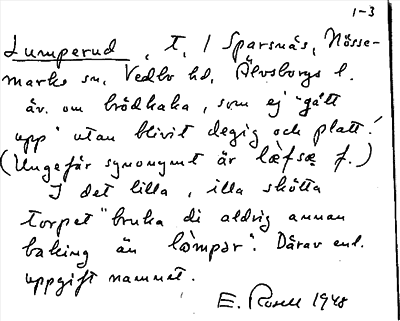 1-3
Lumperud, t. / Sparsnäs, Nösse-
marks sn, Vedbo hd, Älvsborgs l.
äv. om brödkaka, som ej "gått
upp" utan blivit degig och platt!
(Ungefär synonymt är læfsæ f.)
I det lilla, illa skötta
torpet "bruka di aldrig annan
baking än lòmpər". Därav enl.
uppgift namnet.
E. Rosell 1948